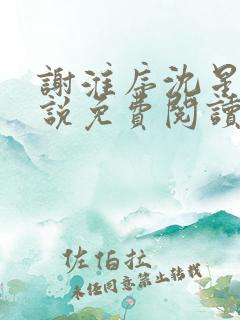 謝淮序沈星
說免費閱讀
佐伯拉
未任同意禁止轉載